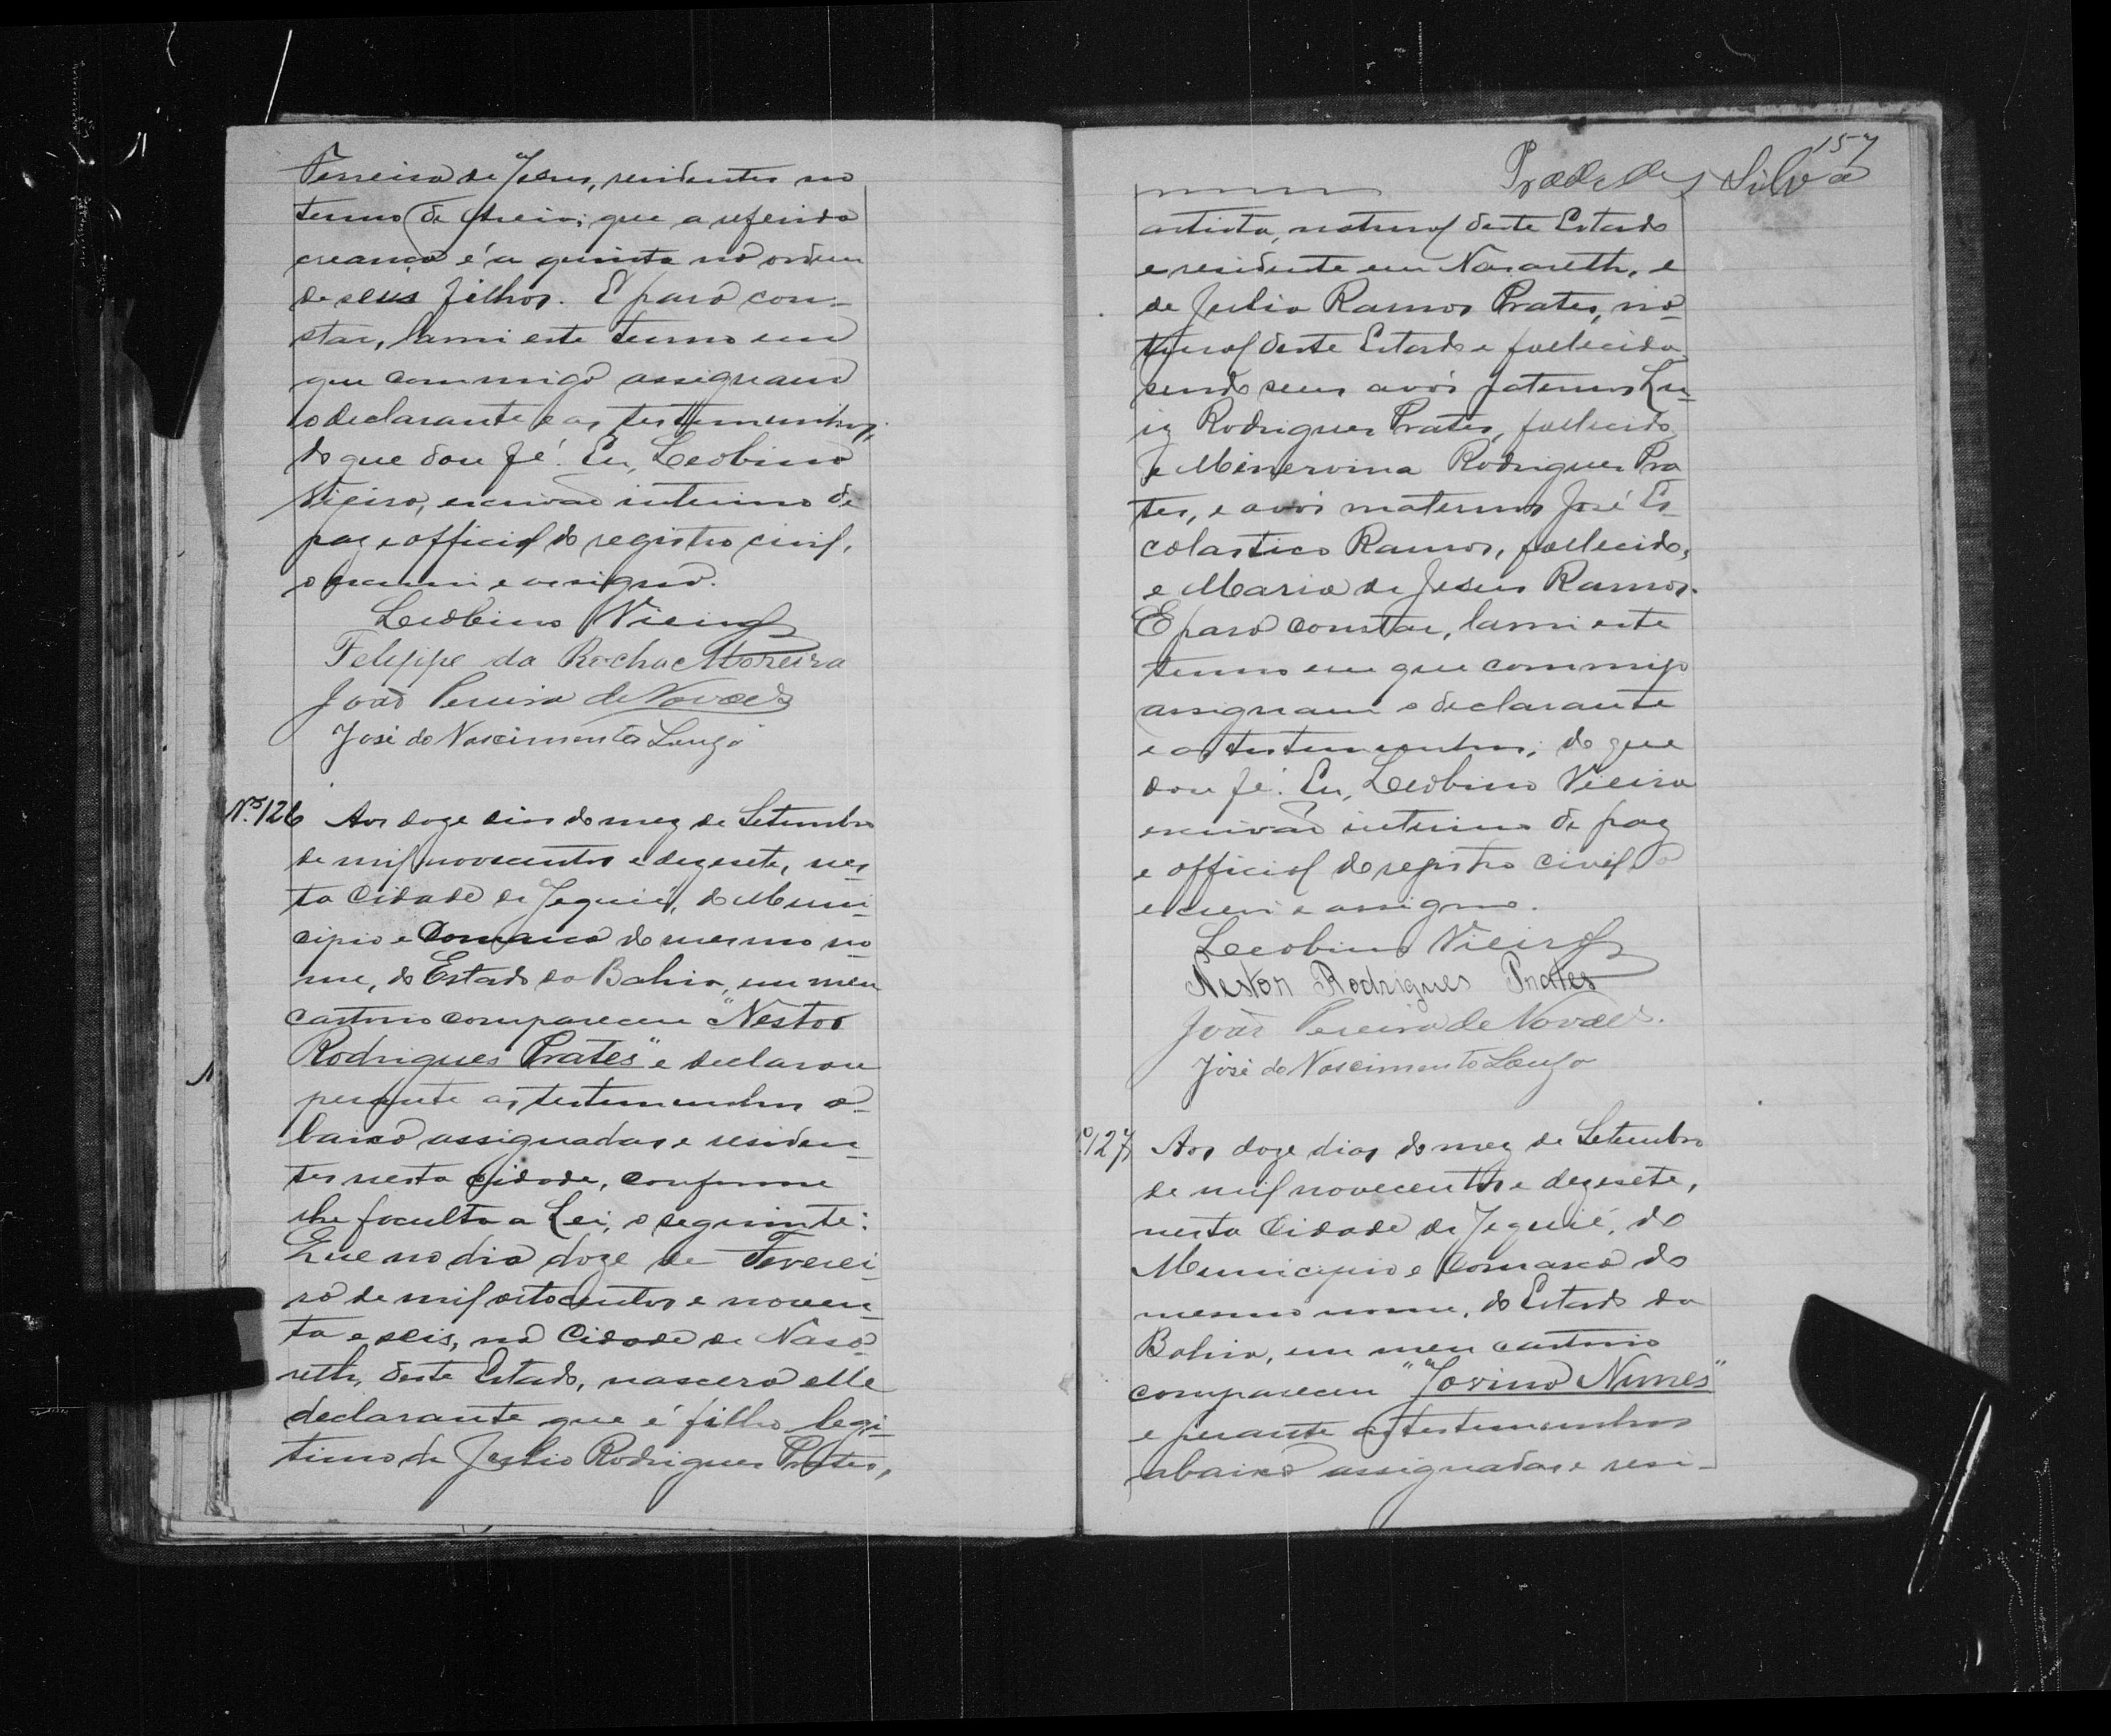 Ferreira de Jesus, residentes no
termo de Areia; que a referida
creança é a quinta na ordem
de seus filhos. E para con-
star, lavrei este termo em
que commigo assignam
o declarante e as testemunhas;
do que dou fé. Eu, Leobino
Vieira, escrivão interino de
paz e official do registro civil,
o escrevi e assigno.
Leobino Vieira
Felippe da Rocha Moreira
João Pereira de Novaes
José do Nascimento
Nº. 126 Aos doze dias do mez de Setembro
de mil novecentos e dezesete, nes-
ta Cidade de Jequié, do Muni-
cipio e Comarca do mesmo no-
me, do Estado da Bahia, em meu
cartorio compareceu "Nestor
Rodrigues Prates" e declarou
perante as testemunhas a-
baixo assignadas e residen-
tes nesta cidade, conforme
lhe faculta a Lei, o seguinte:
Que no dia doze de Feverei-
ro de mil oitocentos e noven-
ta e seis, na Cidade de Naza-
reth, deste Estado, nascera elle
declarante que é filho legi-
timo de Julio Rodrigues Prates,
157
Silva
artista, natural deste Estado
e residente em Nazareth, e
de Julia Ramos Prates, na-
tural deste Estado e fallecida
sendo seus avós paternos Lu-
iz Rodrigues Prates, fallecido
e Minervina Rodrigues Pra
tes, e avós maternos José Es-
colastico Ramos, fallecido,
e Maria de Jesus Ramos.
E para constar, lavrei este
termo em que commigo
assignam o declarante
e as testemunhas; do que
dou fé. Eu, Leobino Vieira
escrivão interino de paz
e official do registro civil o
escrevi e assigno.
Leobino Vieira
Nestor Rodrigues Prates
João Pereira de Novaes.
José do Nascimento
º. 127 Aos doze dias do mez de Setembro
de mil novecentos e dezesete,
nesta Cidade de Jequié, do
Municipio e Comarca do
mesmo nome, do Estado da
Bahia, em meu cartorio
compareceu "Jovino Nunes"
e perante as testemunhas
abaixo assignadas e resi-